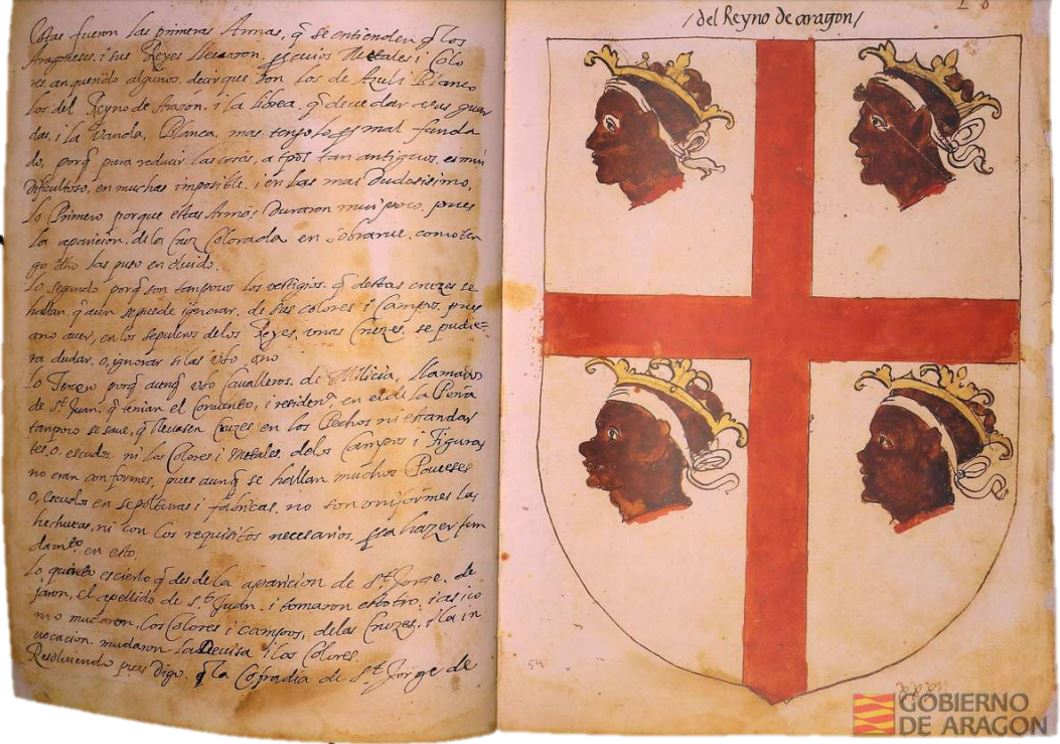 Estas fueron las primeras Armas, q̃ se entienden q̃ los
Aragoneses, i sus Reyes lleuaron, cuios Metales i Colo
res an querido algunos decir que son los de Azul i Blanco
los del Reyno de Aragon. i la librea. q̃ deue dar a sus guar
das. i la vanda, Blanca, mas tengolo mal funda
do, porq̃ para reducir las cosas, a tpõs tan antiguos, es mui
dificultoso, en muchas imposible. i en las mas Dudosisimo.
Lo Primero porque estas Armas, Duraron mui poco. pues
la aparicion. dela Cruz Colorada en Sobrarue. como ten
go dho las puso en oluido.
Lo segundo porq̃ son tampocos los vestigios. q̃ destas cruzes se
hallan. q̃ aun sepuede ignorar. de sus colores i Campos, pues
a no auer, en los sepulcros delos Reyes, vnas Cruzes, se pudie-
ra dudar. o, ignorar si las vso ono
Lo Tercero porq̃ aunq̃ vso Caualleros. de Milicia, llamados
de St. Juan, q̃ tenian el Conuento, i residen en el de la Peña
tampoco se saue, q̃ lleuasen Cruzes en los Pechos ni estandar
tes, o, escudos. ni los Colores i Metales. delos Campos i Figuras
no eran conformes, pues aunq̃ se hallan muchos Paueses
o, escudos en sepolturas i fabricas. no son oniformes las
hechuras, ni con los requisitos necesarios. hazer fun
damto. en esto.
Lo quinto es cierto q̃ desdela aparicion de St. Jorge. de
jaron, el apellido de St. Juan. i tomaron estotro, i asi co
mo mudaron, los Colores i campos, delas Cruzes. i la in
uocacion. mudaron la Deuisa i los Colores.
Resoluiendo pues Digo. q̃ la Cofradia de St. Jorge de
/del Reyno de aragon/
54
GOBIERNO
DE ARAGON